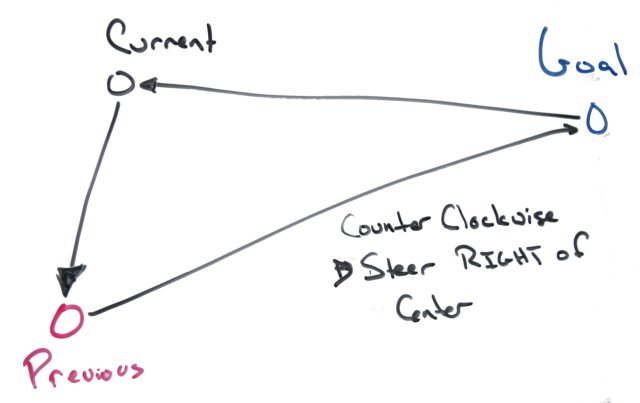 Current
Goal
Counter Clockwise
Steer RIGHT of
Center
Previous